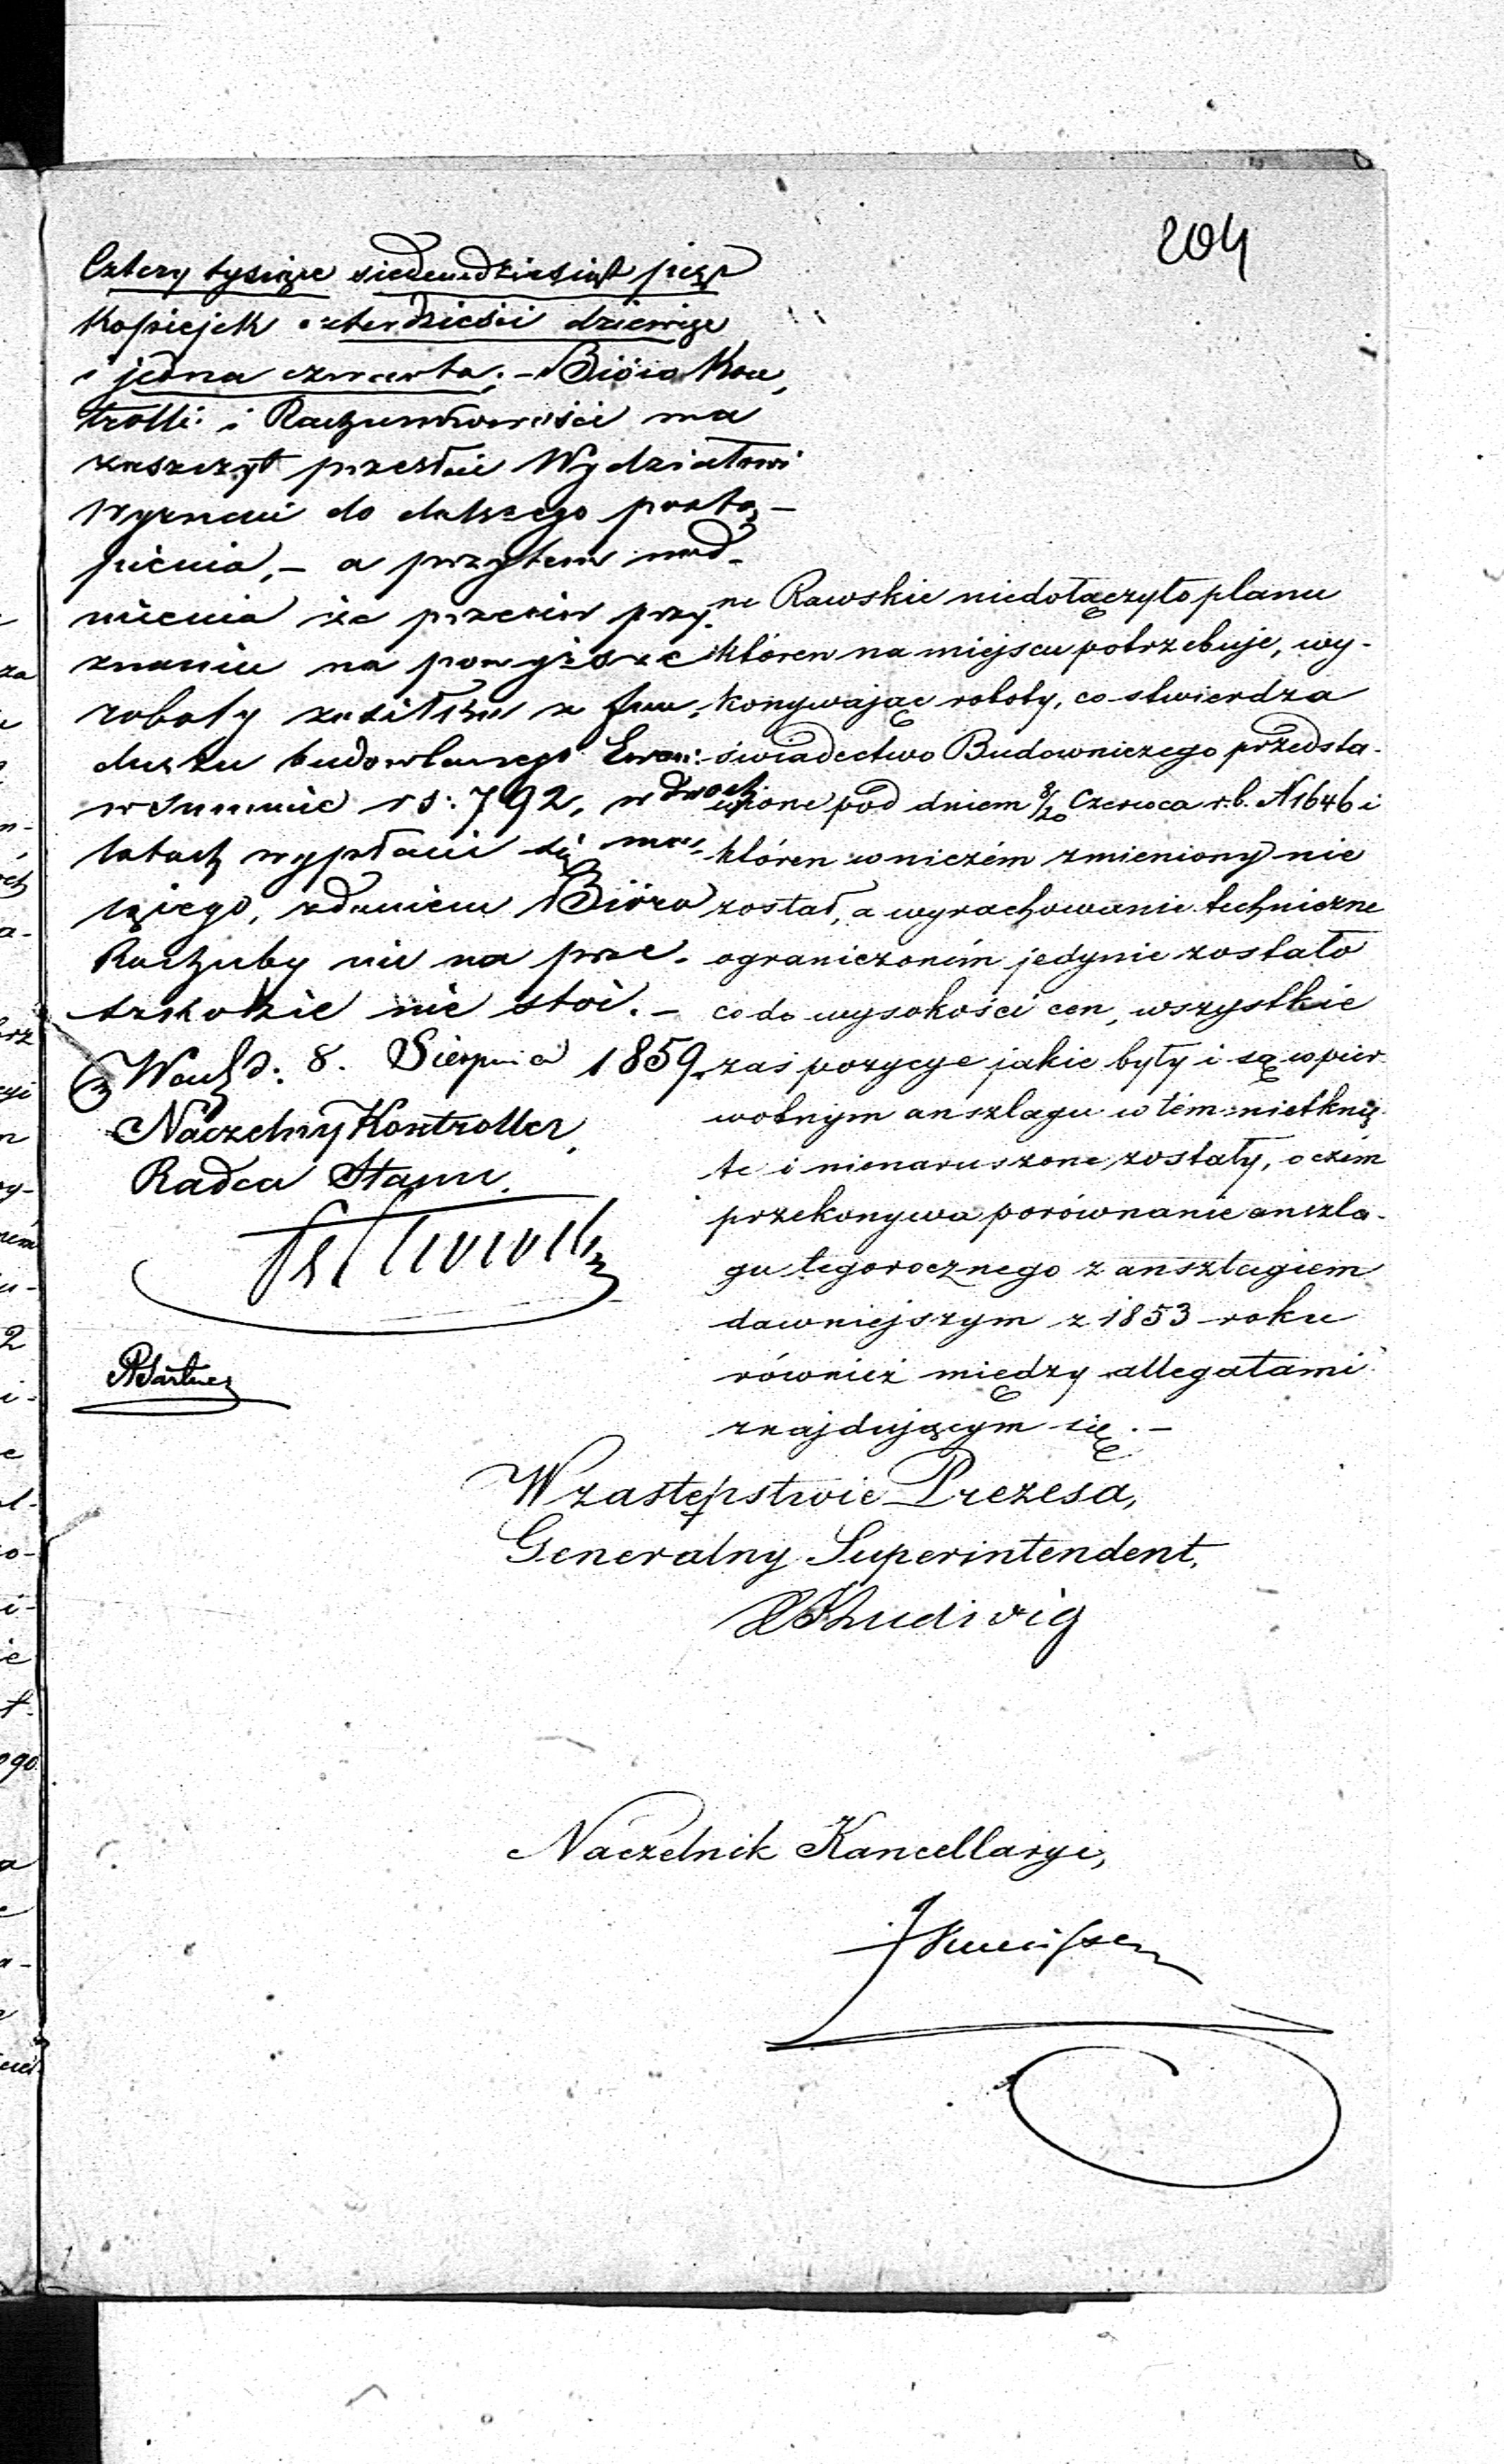 204
Cztery tysiące siedemdziesiąt pięć
Kopiejek czterdzieści dziewięć
i jedna czwarta; – Bióro Kon,
trolli i Rachunkowości ma
zaszczyt przesłać Wydziałowi
Wyznań do dalszego postą–
pienia, – a przytem nad-
mienia że przeciw przy,
znaniu na powyższe
roboty zasiłku z fun,
duszu budowlanego Ewan:
w Summie rs: 792, w dwóch
latach wypłacić się mają,
cego, zdaniem Bióra
Rachuby nic na prze-
szkodzie nie stoi. –
d: 8. Sierpnia 1859.
Naczelny Kontroller,
Radca Stanu,
ne Rawskie niedołączyło planu
któren na miejscu potrzebuje, wy-
konywając roboty, co stwierdza
świadectwo Budowniczego przedsta-
wione pod dniem 8/20 Czerwca r.b. N 1646 i
któren w niczém zmieniony nie
został, a wyrachowanie techniczne
ograniczoném jedynie zostało
co do wysokości cen, wszystkie
zaś pozycye jakie były i są w pier
wotnym anszlagu w tém nietknię
te i nienaruszone zostały, o czém
przekonywa porównanie anszla-
gu tegorocznego z anszlagiem
dawniejszym z 1853 roku
również między allegatami
znajdującym się. –
W zastępstwie Prezesa,
Generalny Superintendent,
Ludwig
Naczelnik Kancellaryi,